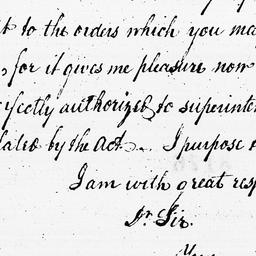 t to the orders which you ma
, for it gives me pleasure now
rfectly authorized to superinte
lated by the Act. I purpose
I am with great resp
Dr Sir.